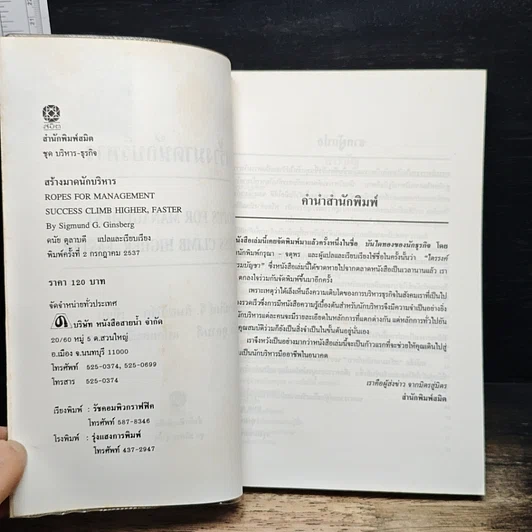 สมิต
สำนักพิมพ์สมิต
ชุด บริหาร-ธุรกิจ
สร้างมาดนักบริหาร
ROPES FOR MANAGEMENT
SUCCESS CLIMB HIGHER, FASTER
By Sigmund G. Ginsberg
ดนัย ตุลาบดี แปลและเรียบเรียง
พิมพ์ครั้งที่ 2 กรกฎาคม 2537
ราคา 120 บาท
จัดจำหน่ายทั่วประเทศ
บริษัท หนังสือสายน้ำ จำกัด
20/60 หมู่ 5 ต.สวนใหญ่
อ.เมือง จ.นนทบุรี 11000
โทรศัพท์ 525-0374, 525-0699
โทรสาร 525-0374
เรียงพิมพ์ : รัชคอมพิวกราฟฟิค
โทรศัพท์ 587-8346
โรงพิมพ์ : รุ่งแสงการพิมพ์
โทรศัพท์ 437-2947
คำนำสำนักพิมพ์
หนังสือเล่มนี้เคยจัดพิมพ์มาแล้วครั้งหนึ่งในชื่อ บันไดทองของนักธุรกิจ โดย
สำนักพิมพ์กรุณา - จตุพร และผู้แปลและเรียบเรียงใช้ชื่อในครั้งนั้นว่า "ไตรรงค์
ซึ่งหนังสือเล่มนี้ได้ขาดหายไปจากตลาดหนังสือเป็นเวลานานแล้ว เรา
ตกลงใจร่วมกันจัดพิมพ์ขึ้นมาอีกครั้ง
เพราะเหตุว่าได้เล็งเห็นถึงความเติบโตของการบริหารธุรกิจในสังคมเราที่เป็นไป
รวดเร็วซึ่งการมีหนังสือความรู้เบื้องต้นสำหรับนักบริหารจึงมีความจำเป็นอย่างยิ่ง
นักบริหารแต่ละคนจะมีรายละเอียดในหลักการที่แตกต่างกัน แต่หลักการทั่วไปอัน
คุณสมบัติร่วมก็ยังเป็นสิ่งจำเป็นในขั้นต้นอยู่นั่นเอง
เราจึงหวังเป็นอย่างมากว่าหนังสือเล่มนี้จะเป็นก้าวแรกที่จะช่วยให้คุณเดินไปสู่
เป็นนักบริหารมืออาชีพในอนาคต
เราคือผู้ส่งข่าว จากมิตรสู่มิตร
สำนักพิมพ์สมิต